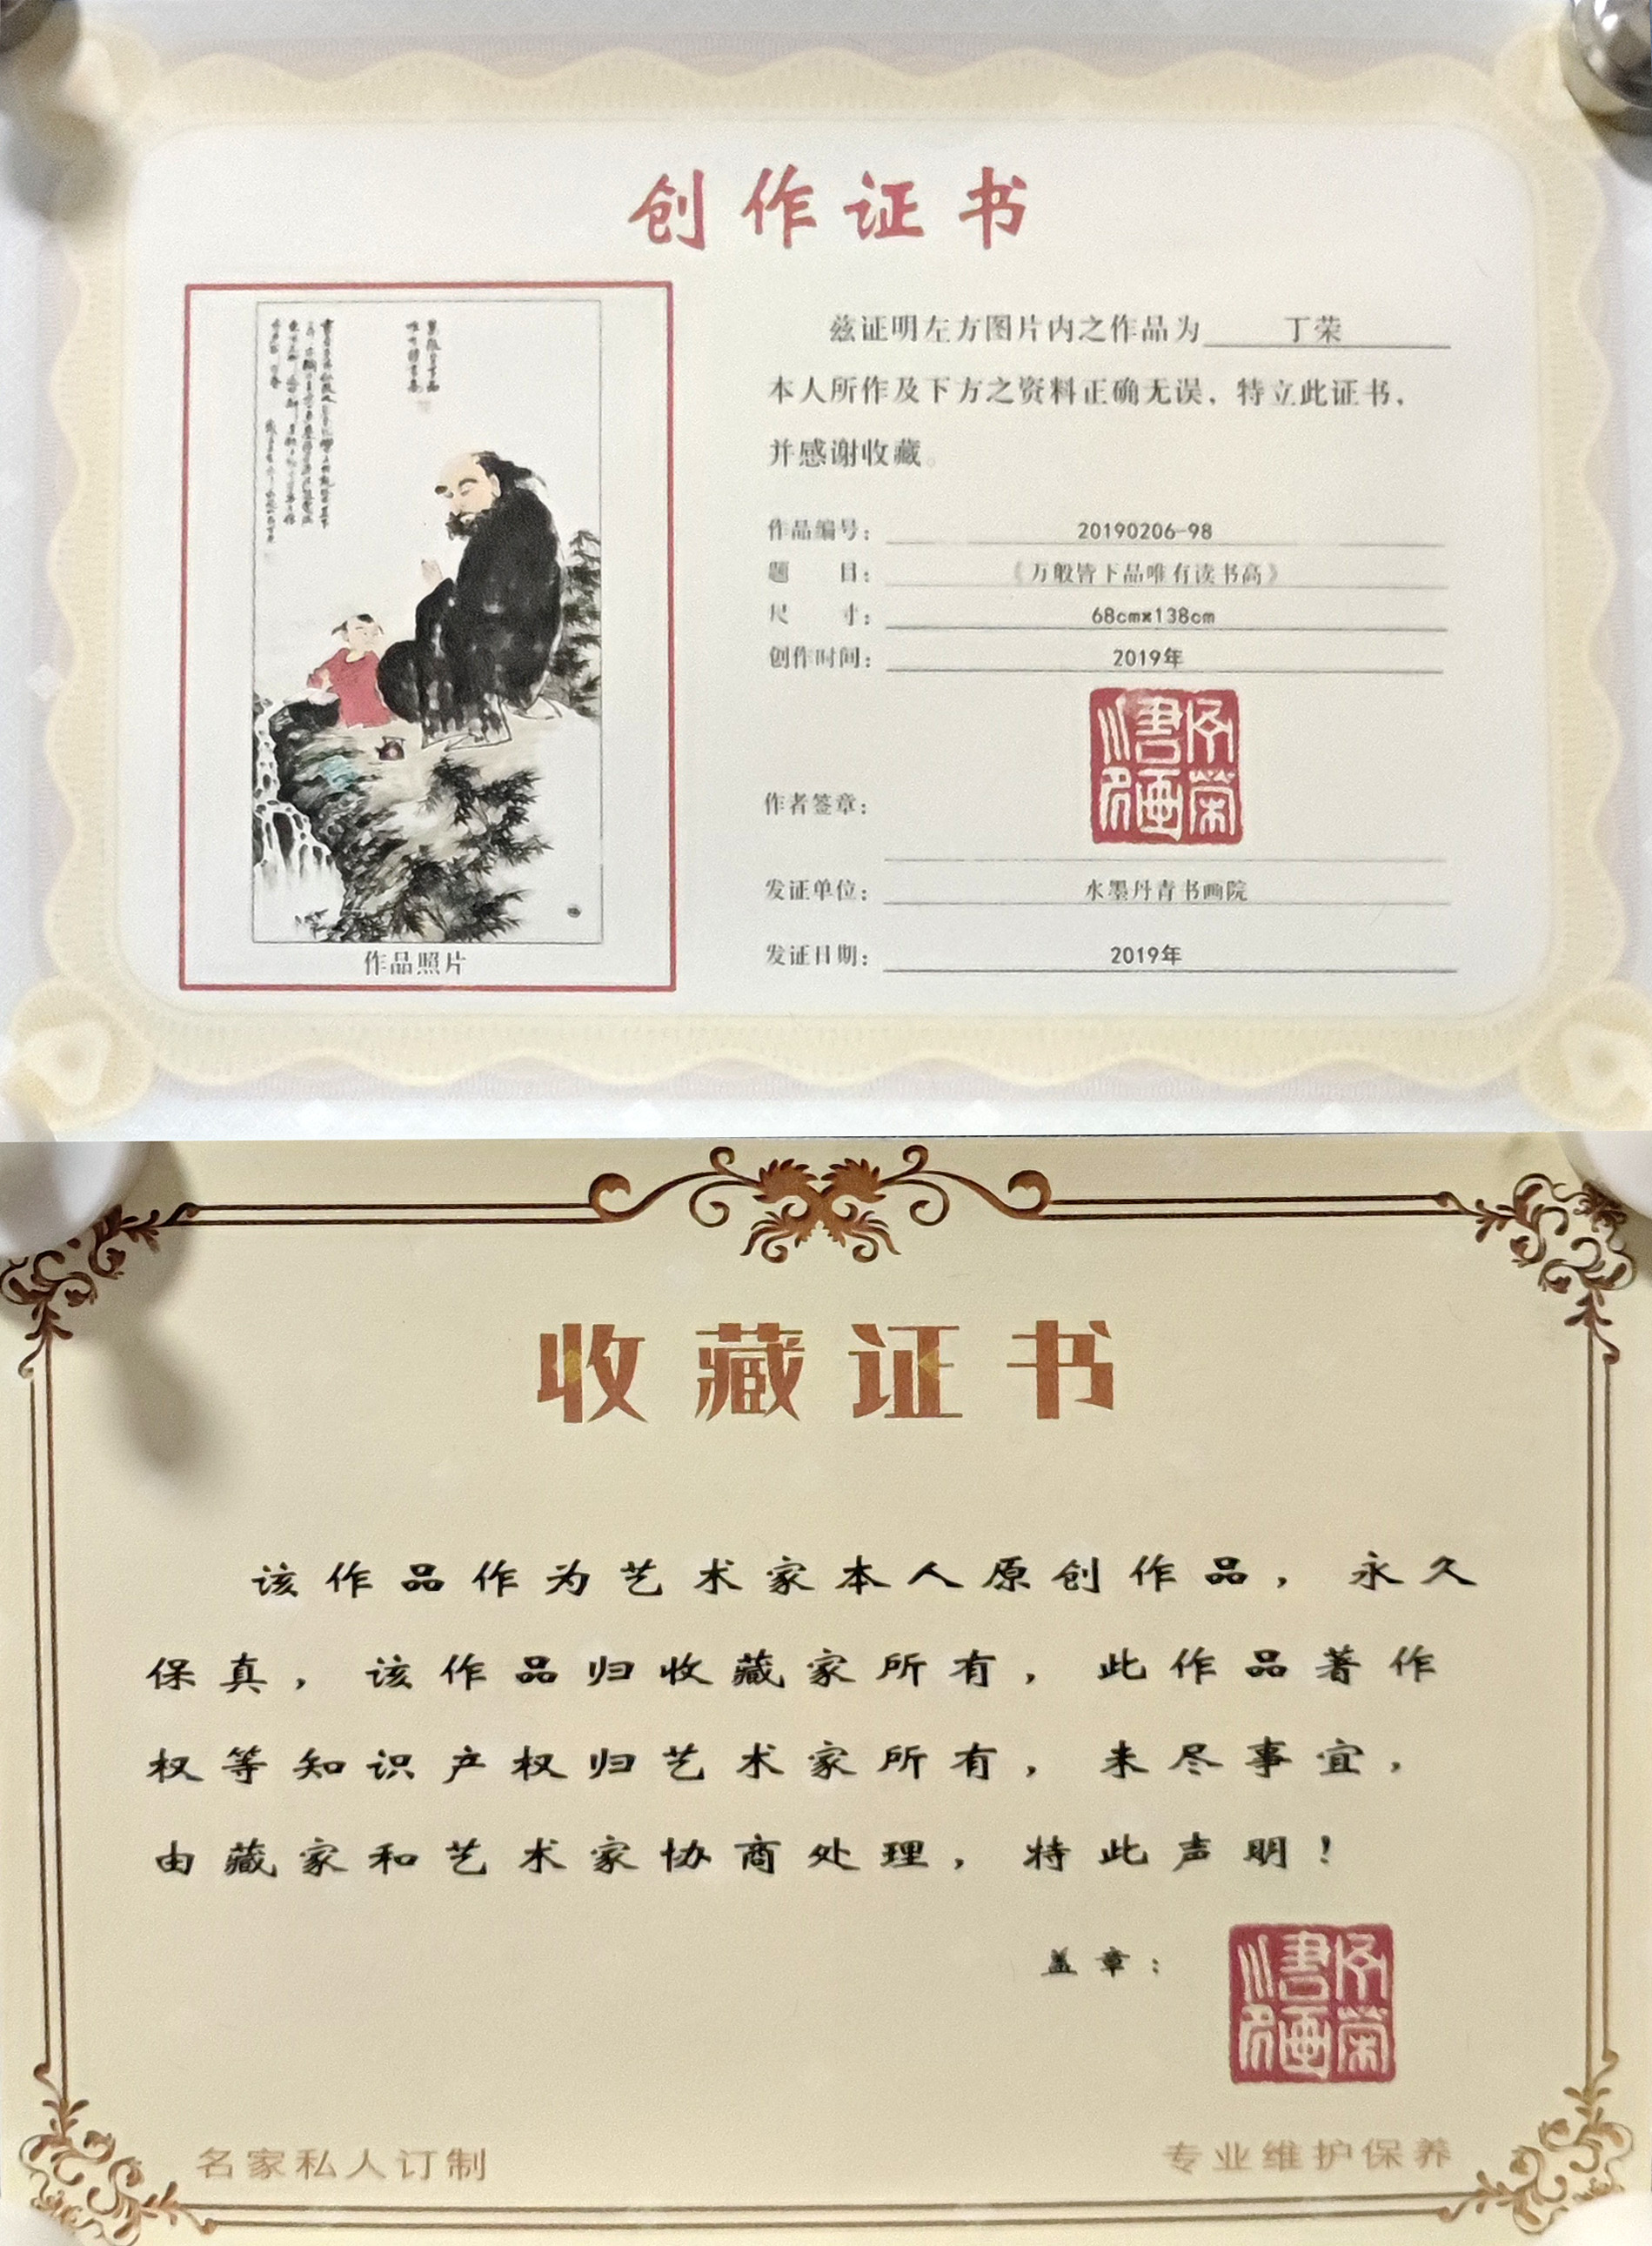 创作证书
兹证明左方图片内之作品为 丁荣
本人所作及下方之资料正确无误，特立此证书，
并感谢收藏。
作品编号： 20190206-98
题 目： 《万般皆下品唯有读书高》
尺 寸： 68cm×138cm
创作时间： 2019年
作者签章：
发证单位： 水墨丹青书画院
发证日期： 2019年
作品照片
收藏证书
该作品作为艺术家本人原创作品，永久
保真，该作品归收藏家所有，此作品著作
权等知识产权归艺术家所有，未尽事宜，
由藏家和艺术家协商处理，特此声明！
盖章：
名家私人订制
专业维护保养